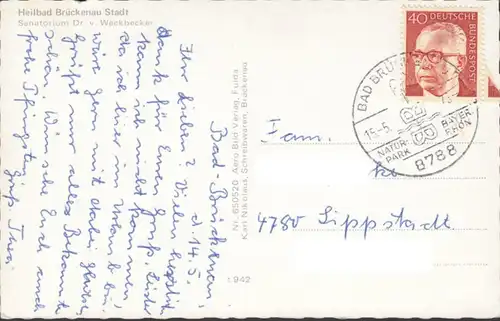 Heilbad Brückenau Stadt
Sanatorium Dr. v. Weckbecker
Bad-Brückenau,
d. 14.5.
Ihr Lieben! Vielen herzlich
Dank für Euren Gruß. Leider
kann ich nicht kommen,
da ich immer im Urlaub bin.
wäre gern mit dabei
grüßt nur alles Bekannte
schön. Wünsche Euch auch
frohe Pfingsten
Gruß Thea
Nr. 650520 Aero Bild Verlag, Fulda
Karl Nikolaus, Schreibwaren, Brückenau
942
40 DEUTSCHE BUNDESPOST
BAD BRÜCKENAU
15.-5.
NATUR-
PARK
BAYER.
RHÖN
8788
Fam.
4780 Lippstadt